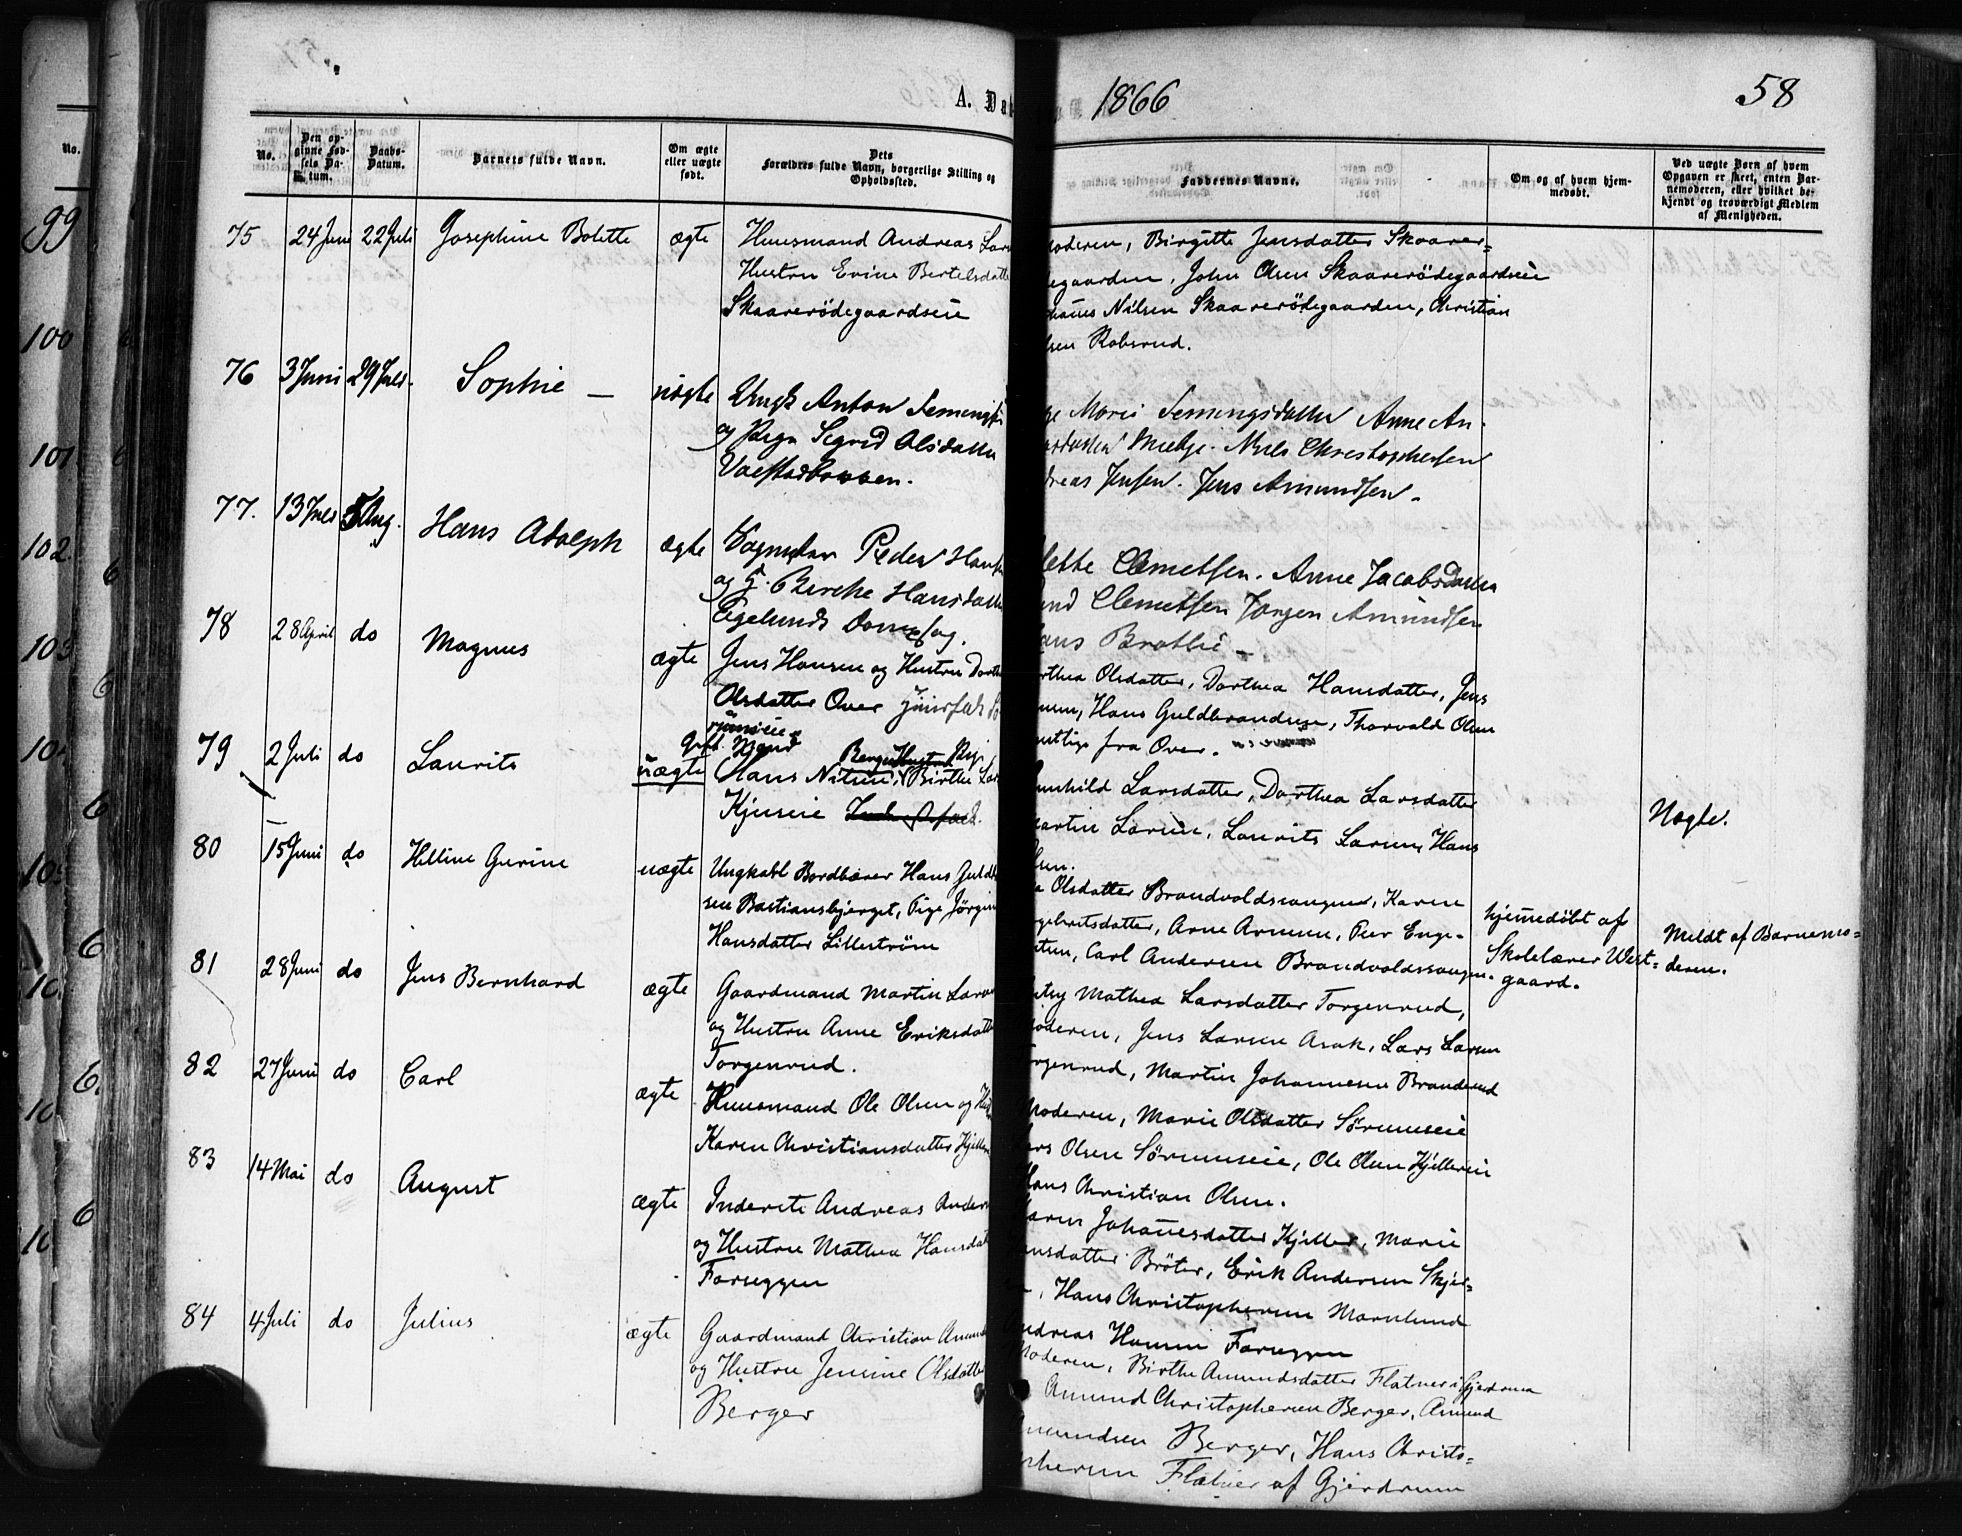 A. Dab
1866
58
No.
Den opgivne Fødsels Datum.
Daabs-Datum.
Barnets fulde Navn.
Om ægte eller uægte født.
Dets Forældres fulde Navn, borgerlige Stilling og Opholdssted.
Faddernes Navne.
Om og af hvem hjemmedøbt.
Ved uægte Børn af hvem Opgaven er skeet, enten Barnemoderen, eller hvilket bekjendt og troværdigt Medlem af Menigheden.
75 24 Juni 22 Juli Josephine Bolette ægte Huusmand Andreas Lars
Hustru Evine Bertelsdatte
Skaarerødegaardseie
oderen, Birgitte Jensdatter Skaarer=
egaarden, John Olsen Skaarerødegaardseie
Nilsen Skaarerødegaarden, Christian
lsen Robsrud.
76 3 Juni 29 Juli Sophie — uægte Ungk Anton
og Pige Sigrid Olsdatter
Marie Anne An-
Nils Christophersen
dreas Jensen. Jens Amundsen.
77. 13 Juli 5 Aug. Hans Adolph ægte Peder Hans
og G. Birthe Hansdatte
Egelunds Damsag.
ette Clemetsen. Anne Jacobsdatter
und Clemetsen Jørgen Amundsen
ans Brothie
78 28 April do Magnus ægte Jens Hansen og Hustru Dort
Olsdatter Over
rthea Olsdatter, Dorthea Hansdatter, Jens
Hans Guldbrandsen, Thorvald Olsen
mtlige fra Over.
79 2 Juli do Laurits uægte Gift Mand
Hans Nilsen, Birthe Lar
Kjuseie
unhild Larsdatter, Dorthea Larsdatter
artin Larsen, Laurits Larsen, Hans
lsen.
Uægte.
80 15 Juni do Helline Gurine uægte Ungkarl Bordbærer Hans Guldb
sen Bastiansbjerget, Pige Jørgin
Hansdatter Lillestrøm
a Olsdatter Brandvoldsvangen, Karen
ngebretsdatter, Arne Arnesen, Peer Enge-
etsen, Carl Andersen Brandvoldsvangen.
hjemmedøbt af
Skolelærer West=
gaard.
Meldt af Barnemo=
deren.
81 28 Juni do Jens Bernhard ægte Gaardmand Martin Larse
og Hustru Anne Eriksdatte
Torgenrud.
Mathea Larsdatter Torgenrud,
oderen, Jens Larsen Asak, Lars Larsen
orgenrud, Martin Johannesen Branderud
82 27 Juni do Carl ægte Huusmand Ole Olsen og Hus
Karen Christiansdatter Kjelle
Moderen, Marie Olsdatter Sørumseie
ars Olsen Sørumseie, Ole Olsen Kjellereie
Hans Christian Olsen.
83 14 Mai do August ægte Inderste Andreas Anders
og Hustru Mathea Hansdat
Farseggen
Karen Johannesdatter Kjeller, Marie
ansdatter Brøter, Erik Andersen Skjer=
, Hans Christophersen Mornlund
ndreas Hansen Farseggen
84 4 Juli do Julius ægte Gaardmand Christian Amund
og Hustru Jensine Olsdatte
Berger
Moderen, Birthe Amundsdatter Flatner i Gjerdrum
Amund Christophersen Berger, Amund
mundsen Berger, Hans Christo=
phersen Flatner af Gjerdrum
No.
99
100
101
102
103